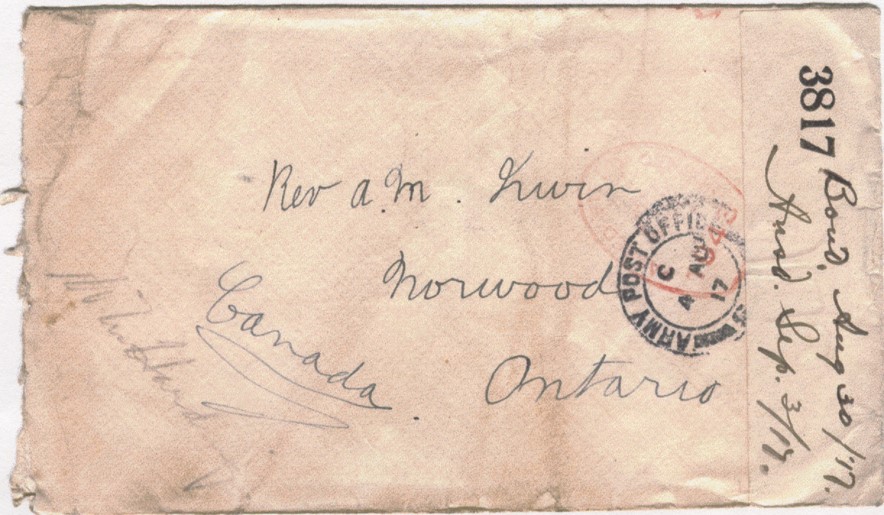 Rev A.M. Irwin
Norwood
Ontario
Canada
ARMY POST OFFICE
C
4 AU
17
3817
Aug 30/17.
Ansd. Sep. 3/17.